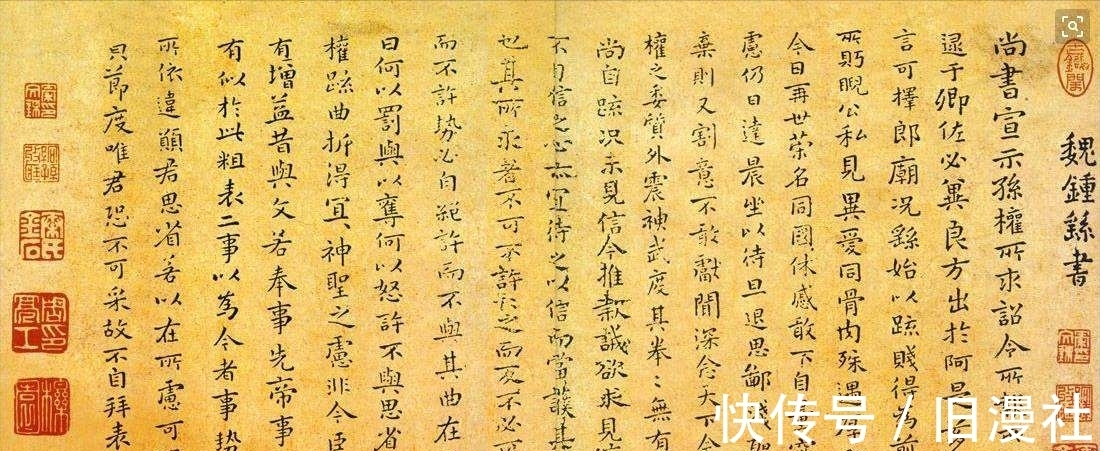 魏鍾繇書
尚書宣示孫權所求詔令所
逮于卿佐必冀良方出於阿是
言可擇郎廟况繇始以疏賤得為前
所眄睨公私見異愛同骨肉殊遇厚
今日再世榮名同國休感敢不自
慮仍日達晨坐以待旦退思鄙淺聖
棄則又割意不敢獻聞深念天下今
權之委質外震神武度其拳〻無有
尚自疏况未見信今推款誠欲求見
不自信之心亦宜待之以信而當護其
也其所求者不可不許許之而反不必可
而不許勢必自絕許而不與其曲在
曰何以罰與以奪何以怒許不與思省
權疏曲折得宜神聖之慮非今臣
有增益昔與文若奉事先帝事
有似於此粗表二事以為今者事勢
所依違願君思省若以在所慮可
具節度唯君恐不可采故不自拜表
快传号 / 旧漫社